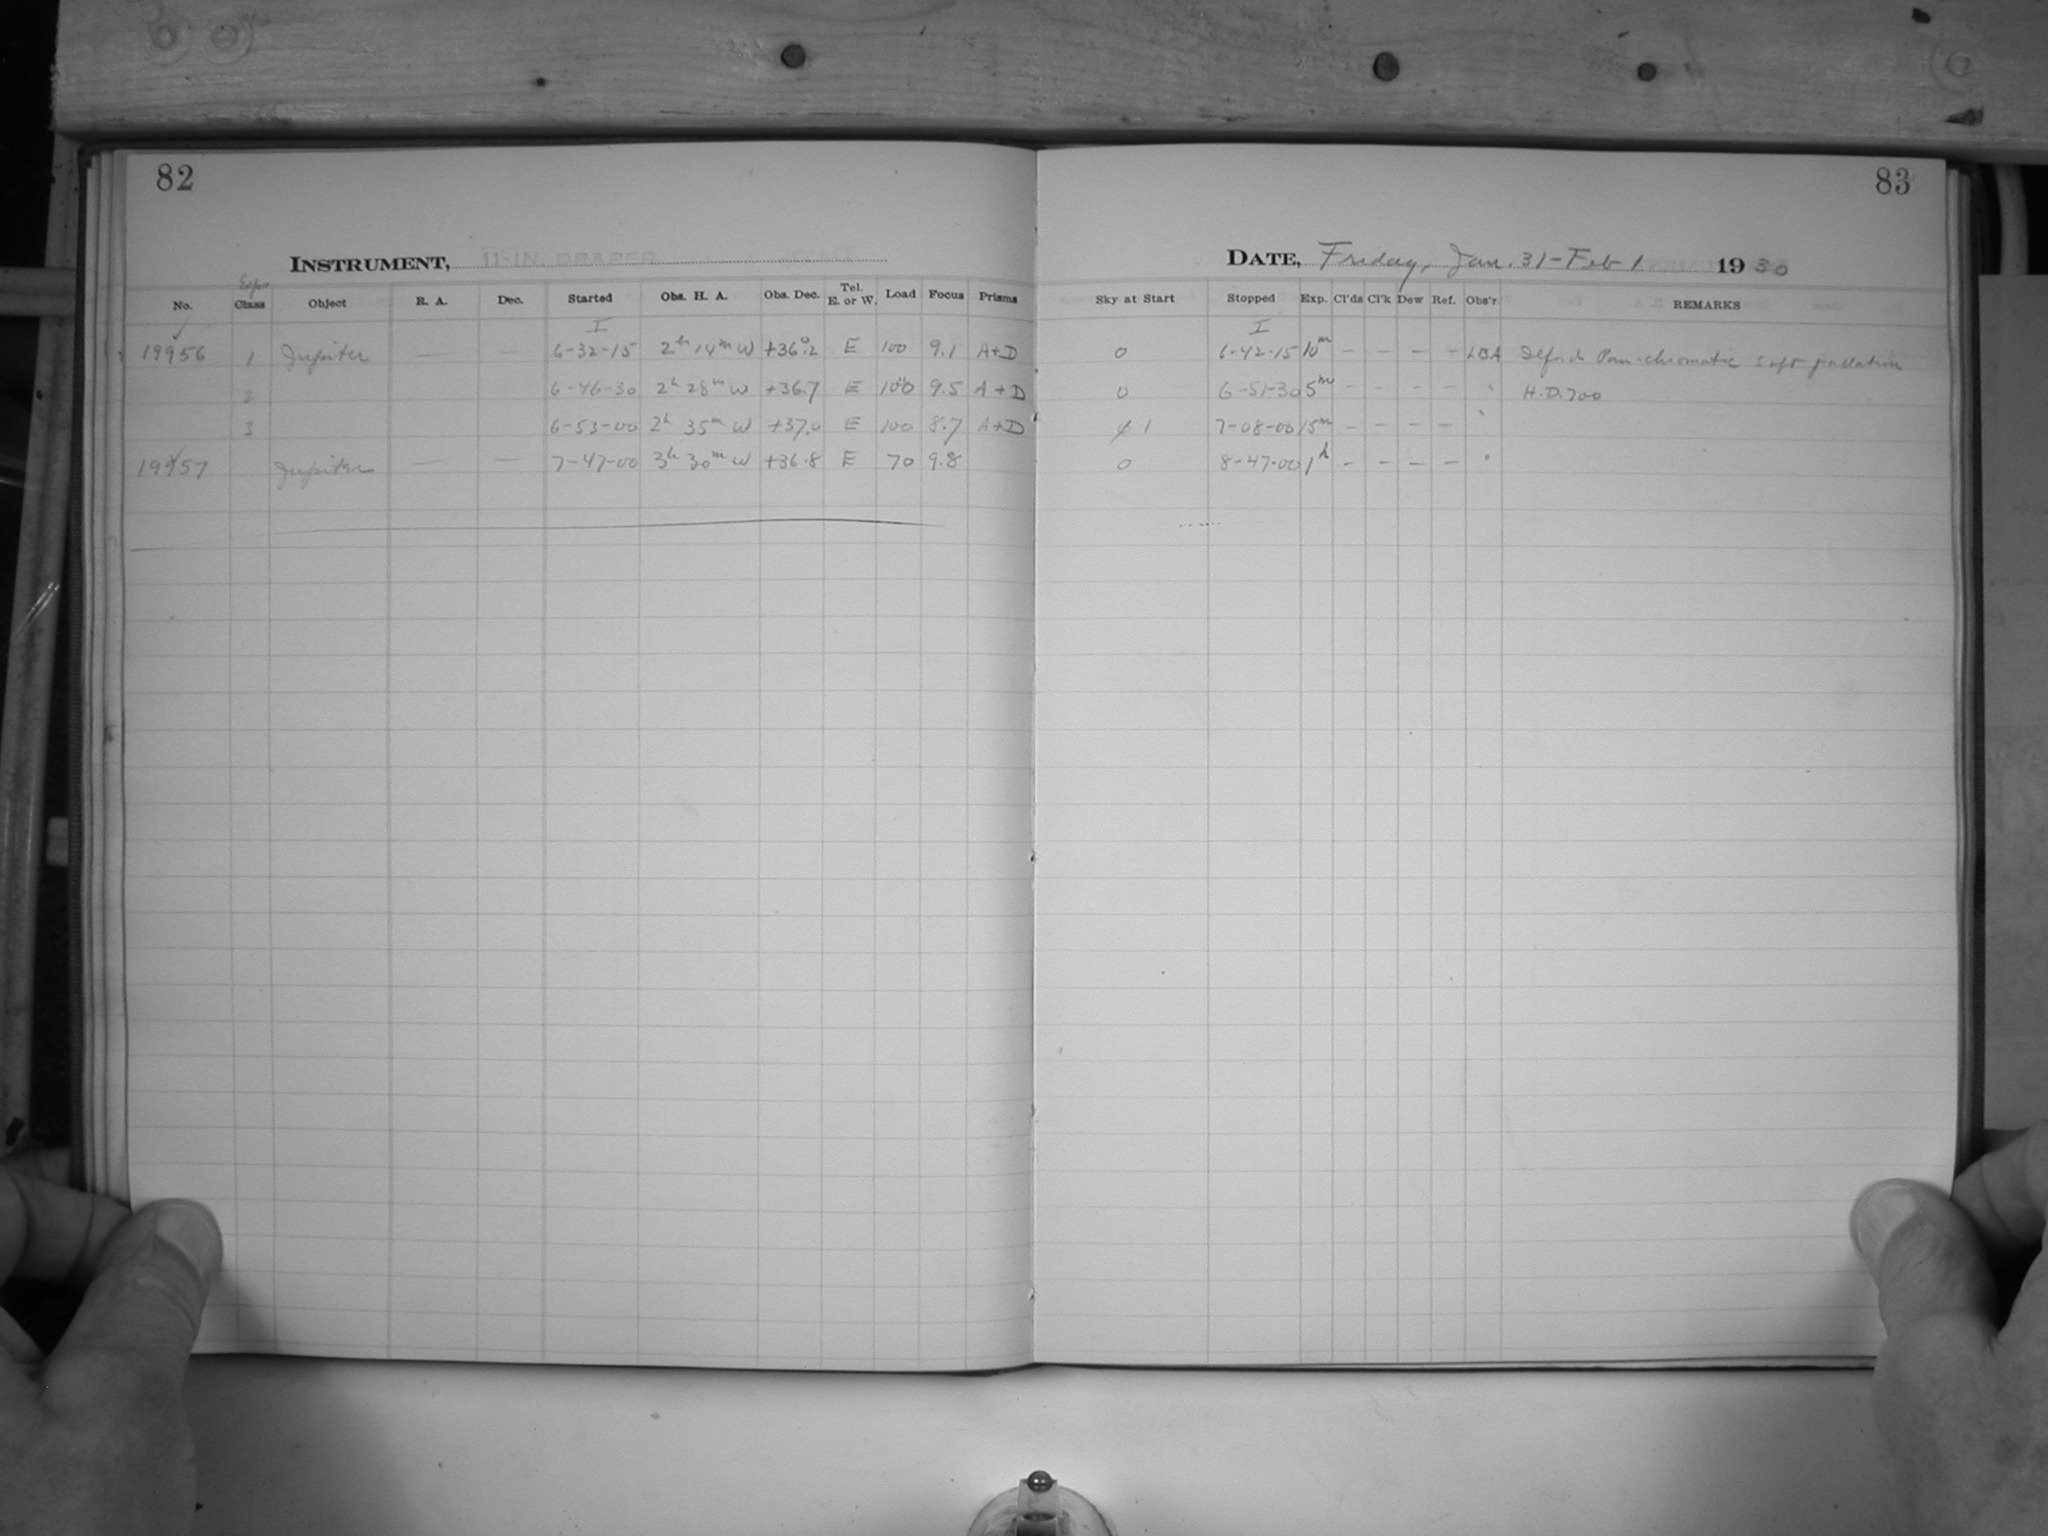 82
INSTRUMENT, 11-IN. DRAPER
Expo
No. Class Object R. A. Dec. Started Obs. H. A. Obs. Dec. Tel. E. or W. Load Focus Prisms
I
19956 1 Jupiter — — 6-32-15 2h 14m W +36°.2 E 100 9.1 A+D
2 6-46-30 2h 28m W +36.7 E 100 9.5 A+D
3 6-53-00 2h 35m W +37.0 E 100 8.7 A+D
19957 Jupiter — — 7-47-00 3h 30m W +36.8 E 70 9.8
83
DATE, Friday, Jan. 31-Feb 1 1930
Sky at Start Stopped Exp. Cl'ds Cl'k Dew Ref. Obs'r REMARKS
I
0 6-42-15 10m — — — — LBA Ilford Pan-chromatic soft gradation
0 6-51-30 5m — — — — " H.D. 700
1 7-08-00 15m — — — — "
0 8-47-00 1h — — — — "